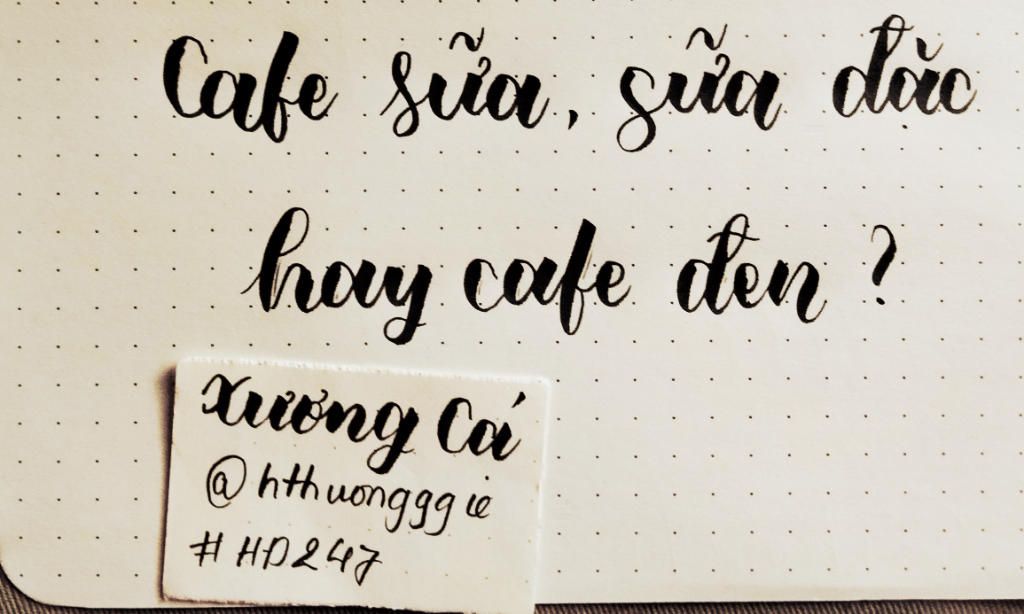 Cafe sữa, sữa đặc
hay cafe đen ?
Xương Cá
@hthuongggie
#HD247